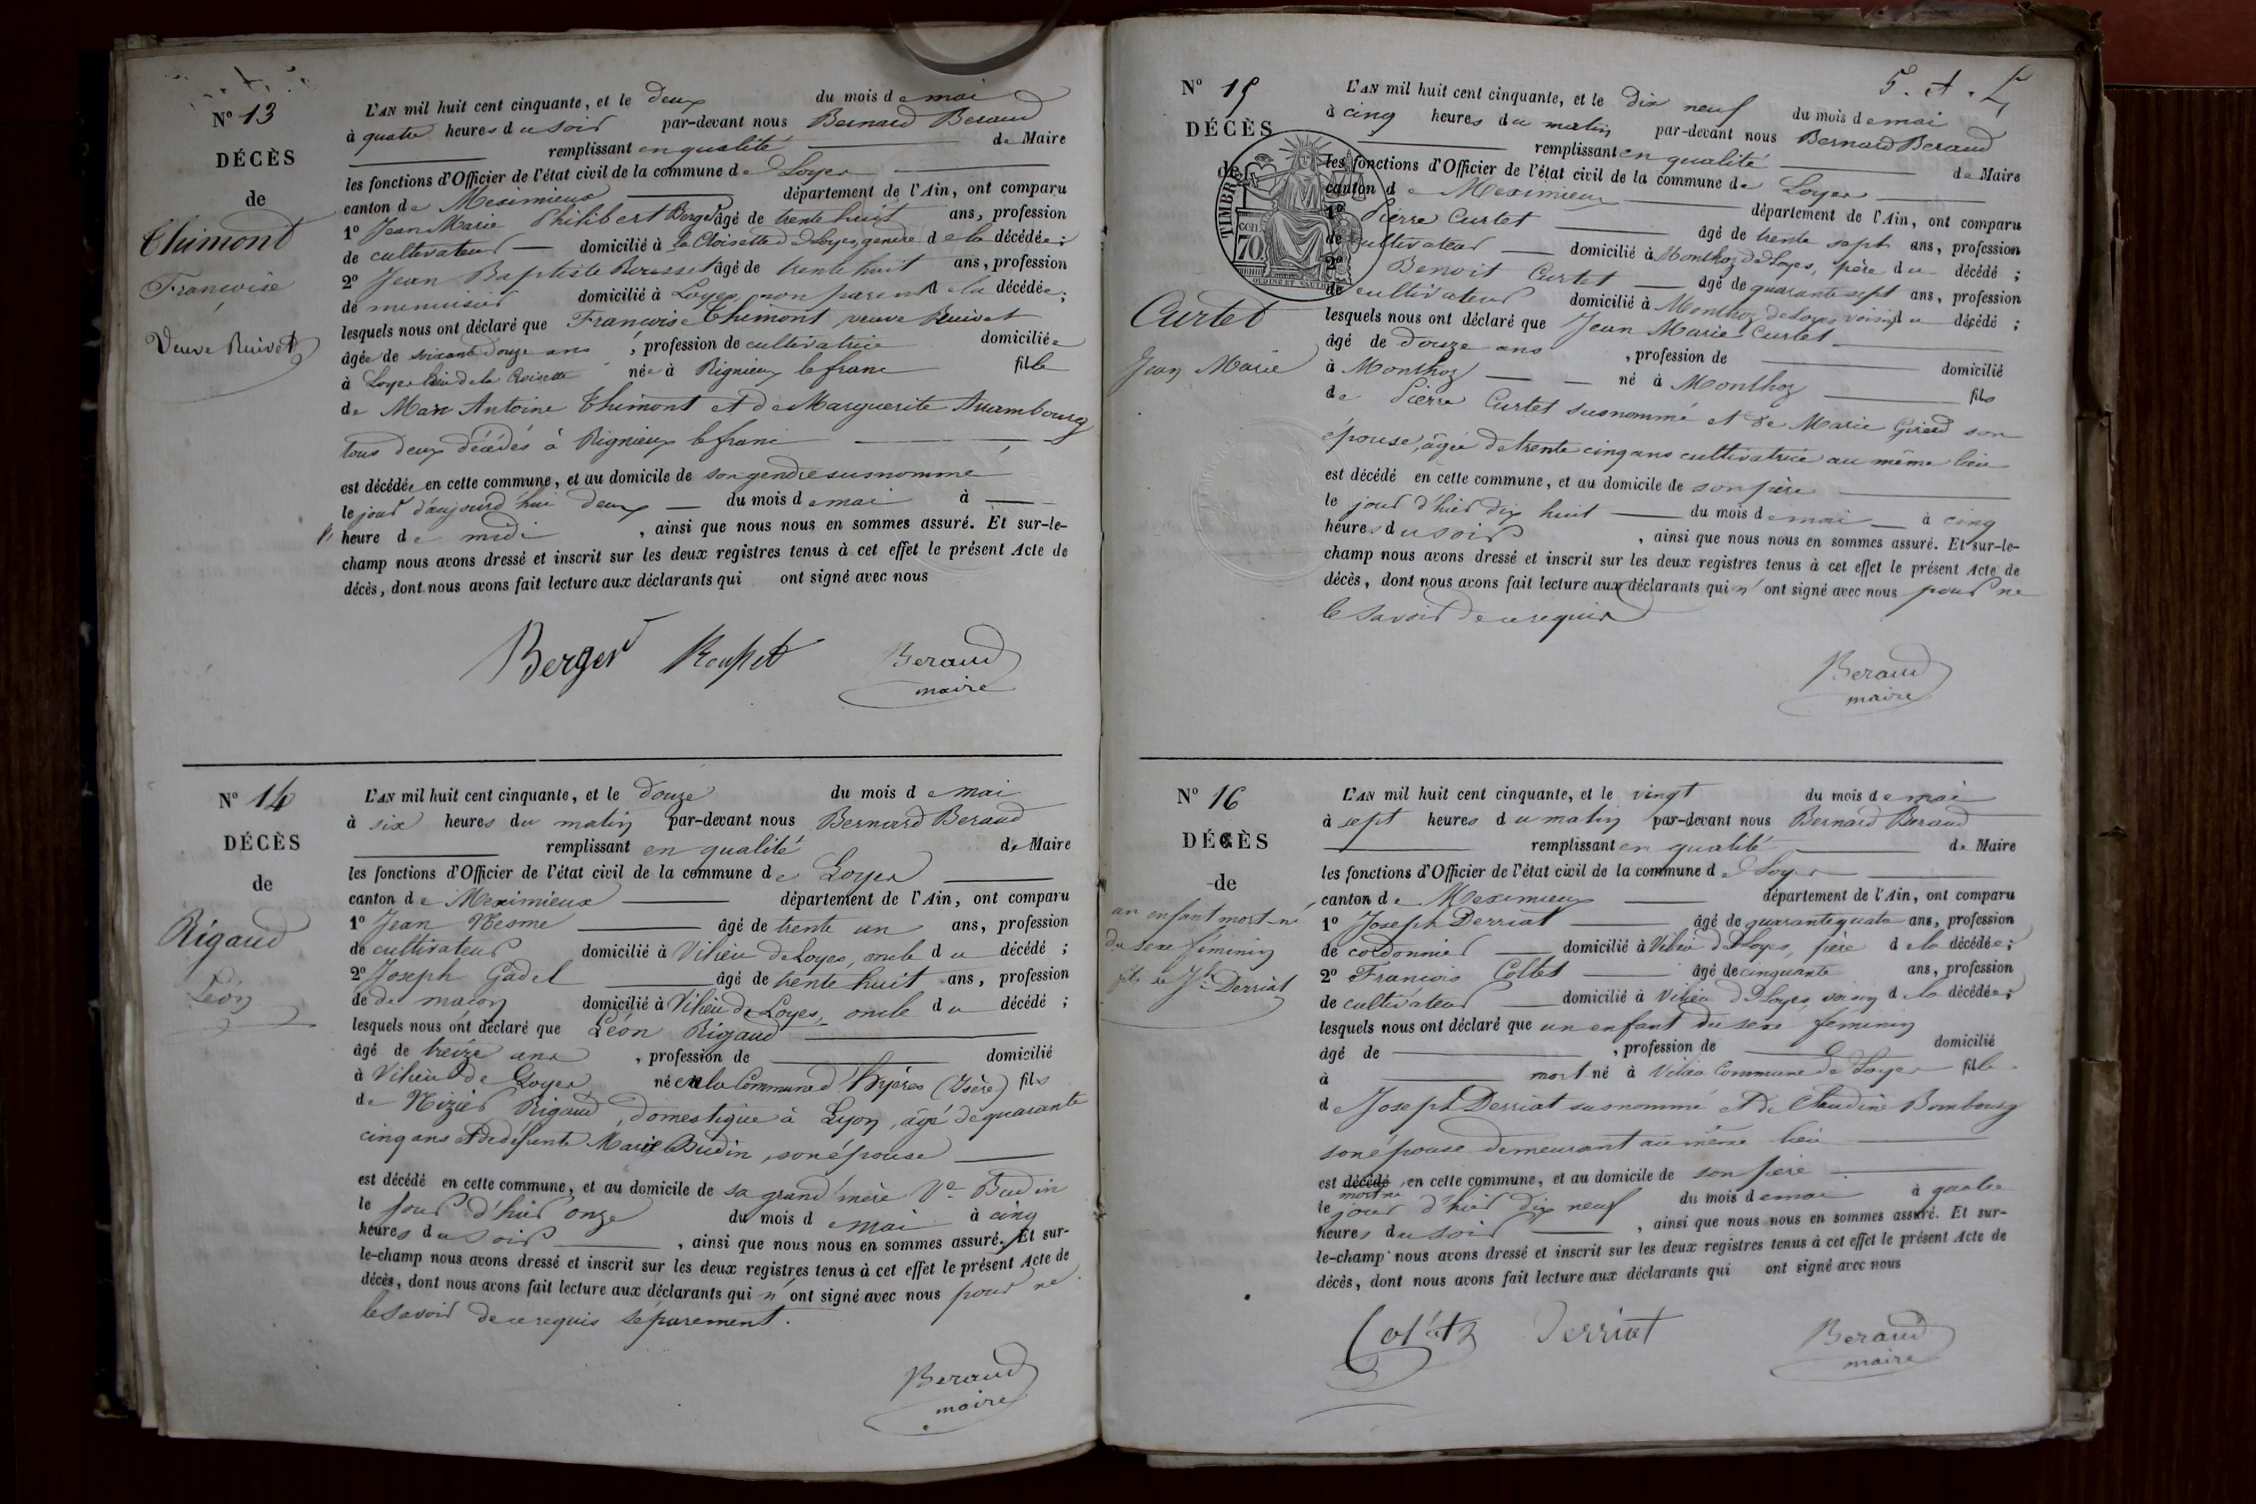 N° 13
DÉCÈS
de
Thimont
Françoise
Veuve Ruivet
L'AN mil huit cent cinquante, et le deux du mois de mai
à quatre heures du soir par-devant nous Bernard Beraud
remplissant en qualité de Maire
les fonctions d'Officier de l'état civil de la commune de Loyes
canton de Meximieux département de l'Ain, ont comparu
1° Jean Marie Philibert Berger âgé de trente huit ans, profession
de cultivateur domicilié à la Croisette de Loyes, gendre de la décédée;
2° Jean Baptiste Rousset âgé de trente huit ans, profession
de menuisier domicilié à Loyes, non parent de la décédée;
lesquels nous ont déclaré que Françoise Thimont, veuve Ruivet
âgée de soixante douze ans, profession de cultivatrice domiciliée
à Loyes lieu de la Croisette née à Rignieux le franc fille
de Marc Antoine Thimont et de Marguerite
tous deux décédés à Rignieux le franc
est décédée en cette commune, et au domicile de son gendre susnommé
le jour d'aujourd'hui deux du mois de mai à
heure de midi, ainsi que nous nous en sommes assuré. Et sur-le-
champ nous avons dressé et inscrit sur les deux registres tenus à cet effet le présent Acte de
décès, dont nous avons fait lecture aux déclarants qui ont signé avec nous
Berger Rousset Beraud
maire
N° 14
DÉCÈS
de
Rigaud
Léon
L'AN mil huit cent cinquante, et le douze du mois de mai
à six heures du matin par-devant nous Bernard Beraud
remplissant en qualité de Maire
les fonctions d'Officier de l'état civil de la commune de Loyes
canton de Meximieux département de l'Ain, ont comparu
1° Jean Nesme âgé de trente un ans, profession
de cultivateur domicilié à Vilieu de Loyes, oncle du décédé;
2° Joseph Gadel âgé de trente huit ans, profession
de de maçon domicilié à Vilieu de Loyes, oncle du décédé;
lesquels nous ont déclaré que Léon Rigaud
âgé de treize ans, profession de domicilié
à Vilieu de Loyes né en la Commune d'hyères (Isère) fils
de Nizier Rigaud, domestique à Lyon, âgé de quarante
cinq ans et de défunte Marie Budin, son épouse
est décédé en cette commune, et au domicile de sa grand'mère Ve Budin
le jour d'hier onze du mois de mai à cinq
heures du soir, ainsi que nous nous en sommes assuré. Et sur-
le-champ nous avons dressé et inscrit sur les deux registres tenus à cet effet le présent Acte de
décès, dont nous avons fait lecture aux déclarants qui n'ont signé avec nous pour ne
le savoir de ce requis séparement.
Beraud
maire
5. A. L
N° 15
DÉCÈS
de
TIMBRE
70
Curtet
Jean Marie
L'AN mil huit cent cinquante, et le dix neuf du mois de mai
à cinq heures du matin par-devant nous Bernard Beraud
remplissant en qualité de Maire
les fonctions d'Officier de l'état civil de la commune de Loyes
canton de Meximieux département de l'Ain, ont comparu
1° Pierre Curtet âgé de trente sept ans, profession
de cultivateur domicilié à Monthoz de Loyes, père du décédé;
2° Benoit Curtet âgé de quarante sept ans, profession
de cultivateur domicilié à Monthoz de Loyes, voisin du décédé;
lesquels nous ont déclaré que Jean Marie Curtet
âgé de douze ans, profession de domicilié
à Monthoz né à Monthoz fils
de Pierre Curtet susnommé et de Marie Girard son
épouse, âgée de trente cinq ans cultivatrice au même lieu
est décédé en cette commune, et au domicile de son père
le jour d'hier dix huit du mois de mai à cinq
heures du soir, ainsi que nous nous en sommes assuré. Et sur-le-
champ nous avons dressé et inscrit sur les deux registres tenus à cet effet le présent Acte de
décès, dont nous avons fait lecture aux déclarants qui n'ont signé avec nous pour ne
le savoir de ce requis
Beraud
maire
N° 16
DÉCÈS
de
un enfant mort-né
du sexe féminin
de Jh Derriat
L'AN mil huit cent cinquante, et le vingt du mois de mai
à sept heures du matin par-devant nous Bernard Beraud
remplissant en qualité de Maire
les fonctions d'Officier de l'état civil de la commune de Loyes
canton de Meximieux département de l'Ain, ont comparu
1° Joseph Derriat âgé de quarante quatre ans, profession
de cordonnier domicilié à Vilieu de Loyes, père de la décédée;
2° François Collet âgé de cinquante ans, profession
de cultivateur domicilié à Vilieu de Loyes, voisin de la décédée;
lesquels nous ont déclaré que un enfant du sexe féminin
âgé de, profession de domicilié
à mort né à Vilieu Commune de Loyes fille
de Joseph Derriat susnommé et de Claudine Bombourg
son épouse demeurant au même lieu
est décédé en cette commune, et au domicile de son père
mort né
le jour d'hier dix neuf du mois de mai à quatre
heures du soir, ainsi que nous nous en sommes assuré. Et sur-
le-champ nous avons dressé et inscrit sur les deux registres tenus à cet effet le présent Acte de
décès, dont nous avons fait lecture aux déclarants qui ont signé avec nous
Derriat Beraud
maire